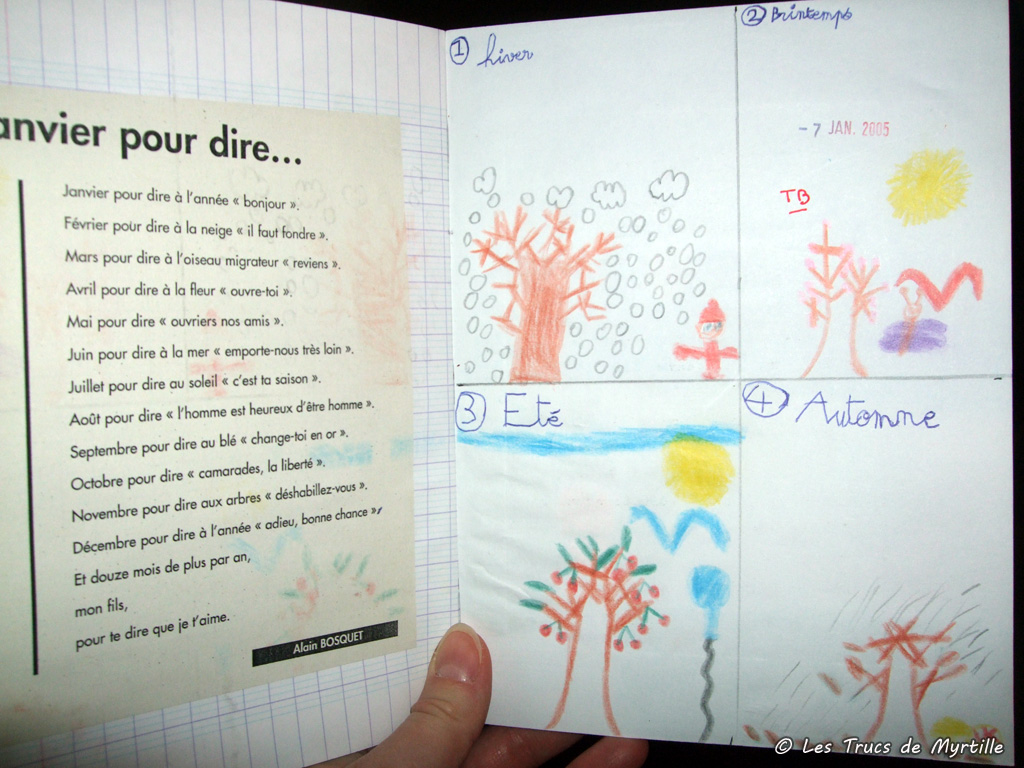 anvier pour dire...
Janvier pour dire à l'année « bonjour ».
Février pour dire à la neige « il faut fondre ».
Mars pour dire à l'oiseau migrateur « reviens ».
Avril pour dire à la fleur « ouvre-toi ».
Mai pour dire « ouvriers nos amis ».
Juin pour dire à la mer « emporte-nous très loin ».
Juillet pour dire au soleil « c'est ta saison ».
Août pour dire « l'homme est heureux d'être homme ».
Septembre pour dire au blé « change-toi en or ».
Octobre pour dire « camarades, la liberté ».
Novembre pour dire aux arbres « déshabillez-vous ».
Décembre pour dire à l'année « adieu, bonne chance »,
Et douze mois de plus par an,
mon fils,
pour te dire que je t'aime.
Alain BOSQUET
1 hiver
2 Printemps
- 7 JAN. 2005
TB
3 Eté
4 Automne
© Les Trucs de Myrtille